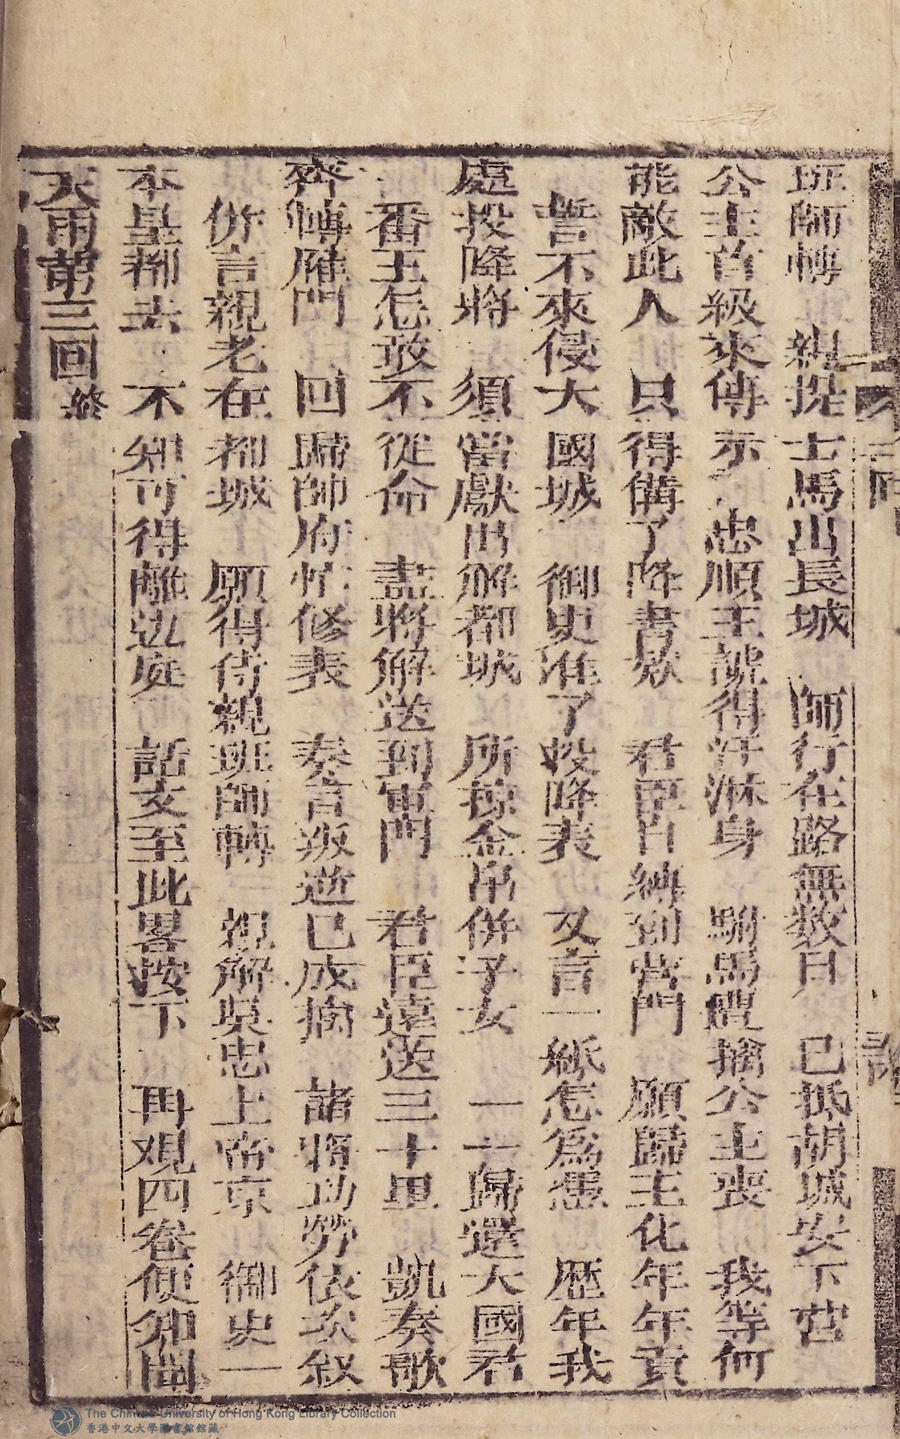 班師轉 親提士馬出長城 師行在路無数日 已抵胡城安下营
公主首級來傳示 忠順王諕得汗淋身 駙馬遭擒公主喪 我等何
能敵此人 只得備了降書欵 君臣自縛到营門 願歸王化年年貢
誓不來侵大國城 御史准了投降表 又言一紙怎為憑 歷年我
處投降將 須當獻出解都城 所掠金帛併子女 一一歸還大國君
番王怎敢不從命 盡將解送到軍門 君臣遠送三十里 凱奏歌
齊轉雁門 回歸帥府忙修表 奏言叛逆已成擒 諸將功勞依次叙
併言親老在都城 願得侍親班師轉 親解吳忠上帝京 御史一
本皇都去 不知可得離边庭 話文至此畧按下 再观四卷便知聞
天雨第三回終
The Chinese University of Hong Kong Library Collection
香港中文大學圖書館館藏